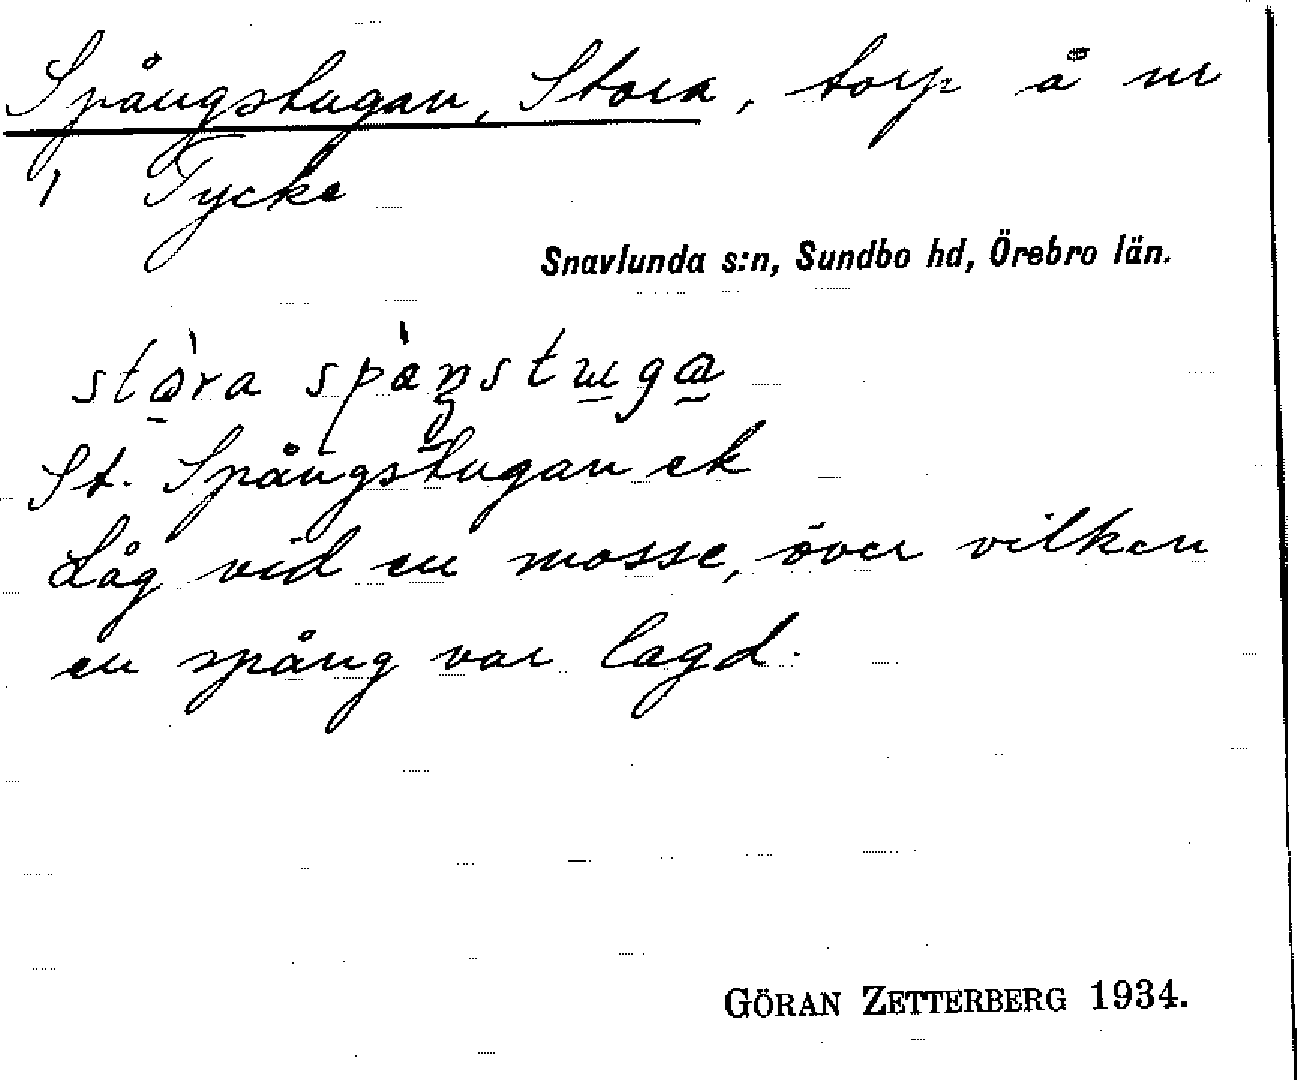 Spångstugan, Stora, torp å nr
1 Tycke
Snavlunda s:n, Sundbo hd, Örebro län.
stờra spàŋstɯga
St. Spångstugan ek
Låg vid en mosse, över vilken
en spång var lagd.
GÖRAN ZETTERBERG 1934.